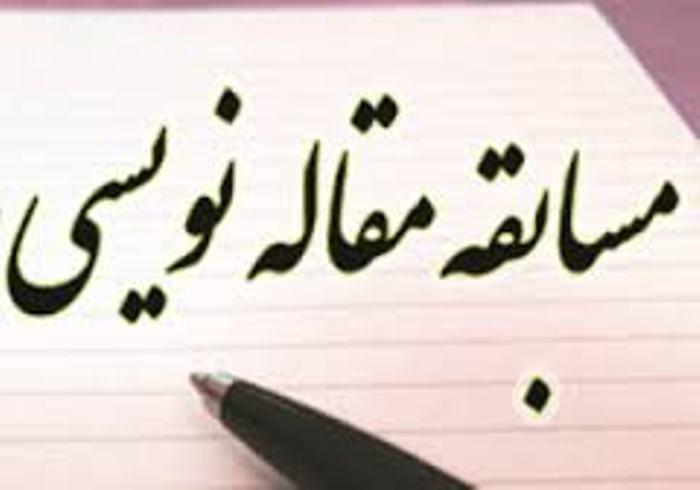 مسابقه مقاله نویسی